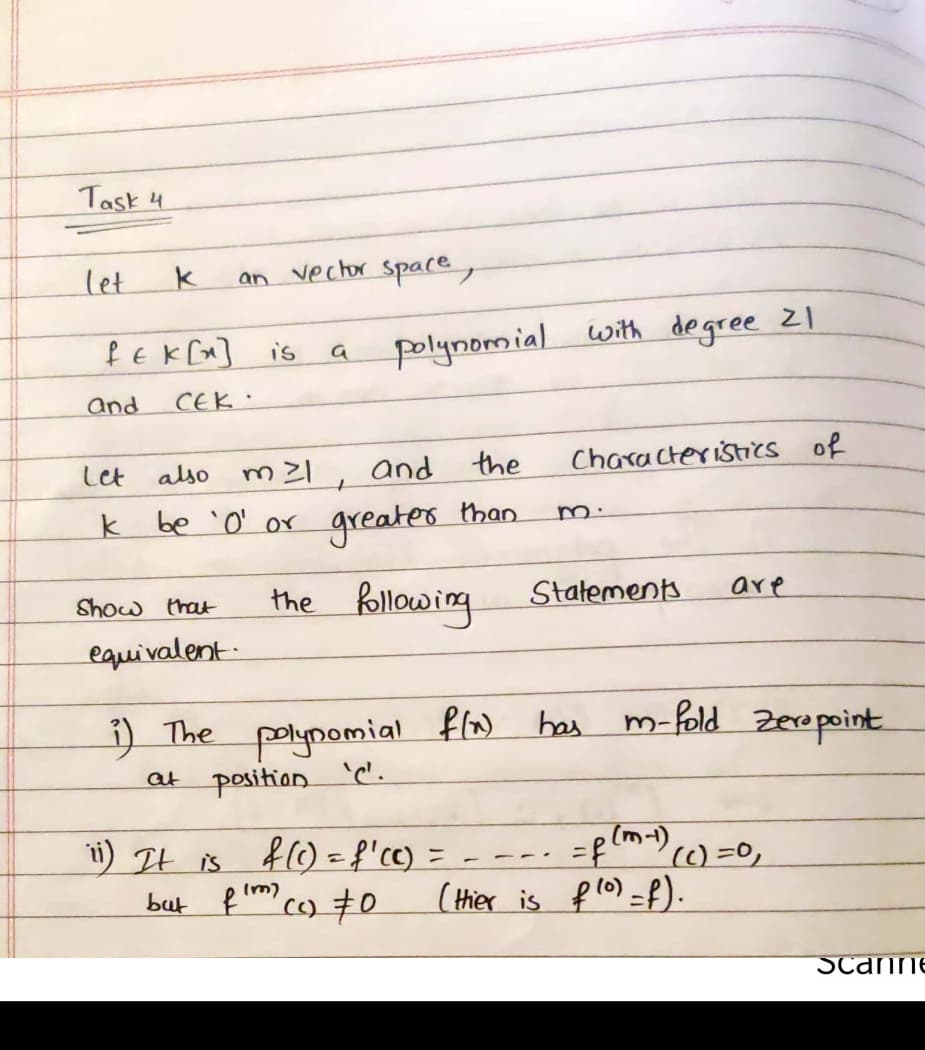 Task 4
let k an vector space,
f ∈ K[x] is a polynomial with degree ≥1
and C∈K.
Let also m≥1, and the Characteristics of
k be '0' or greater than m.
Show that the following Statements are
equivalent.
i) The polynomial f(x) has m-fold Zeropoint
at position 'c'.
ii) It is f(c) = f'(c) = - - - - - = f^(m-1)(c) =0,
but f^(m)(c) ≠0 (Hier is f^(0) =f).